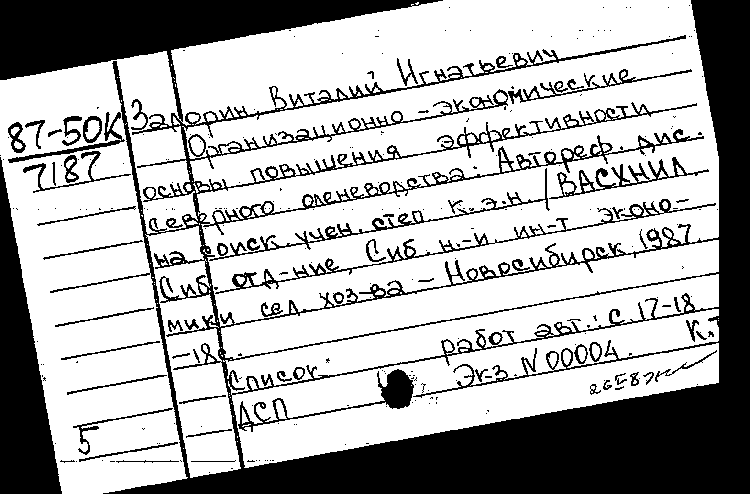 87-50К
7187
Задорин, Виталий Игнатьевич
Организационно-экономические
основы повышения эффективности
северного оленеводства: Автореф. дис.
на соиск. учен. степ. к.э.н. / ВАСХНИЛ.
Сиб. отд-ние, Сиб. н.-и. ин-т эконо-
мики сел. хоз-ва - Новосибирск, 1987.
-18с.
Список работ авт.: с. 17-18
ДСП Экз. N 00004. К.т
5